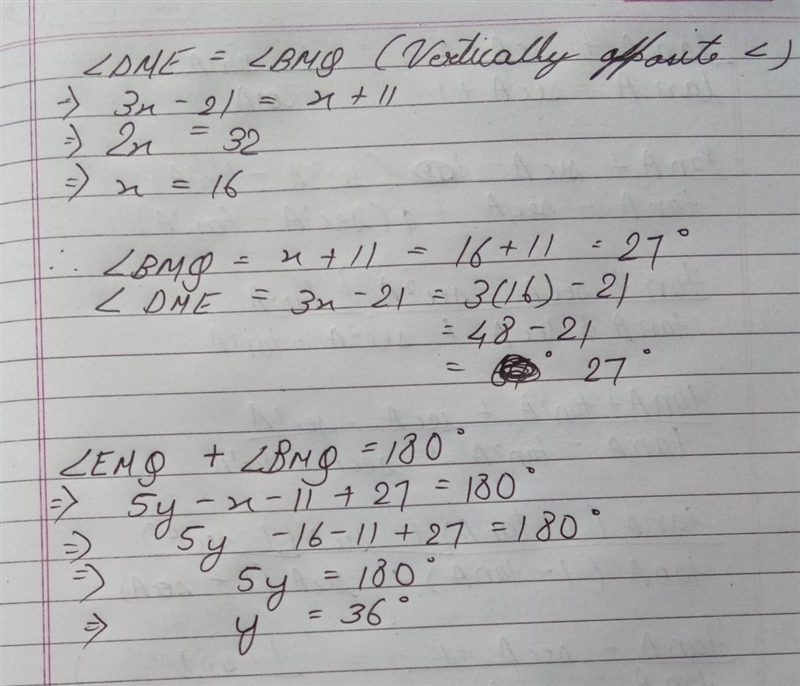 ∠DME = ∠BMQ (Vertically opposite ∠)
⇒ 3x - 21 = x + 11
⇒ 2x = 32
⇒ x = 16
∴ ∠BMQ = x + 11 = 16 + 11 = 27°
∠DME = 3x - 21 = 3(16) - 21
= 48 - 21
= ° 27°
∠EMQ + ∠BMQ = 180°
⇒ 5y - x - 11 + 27 = 180°
⇒ 5y - 16 - 11 + 27 = 180°
⇒ 5y = 180°
⇒ y = 36°